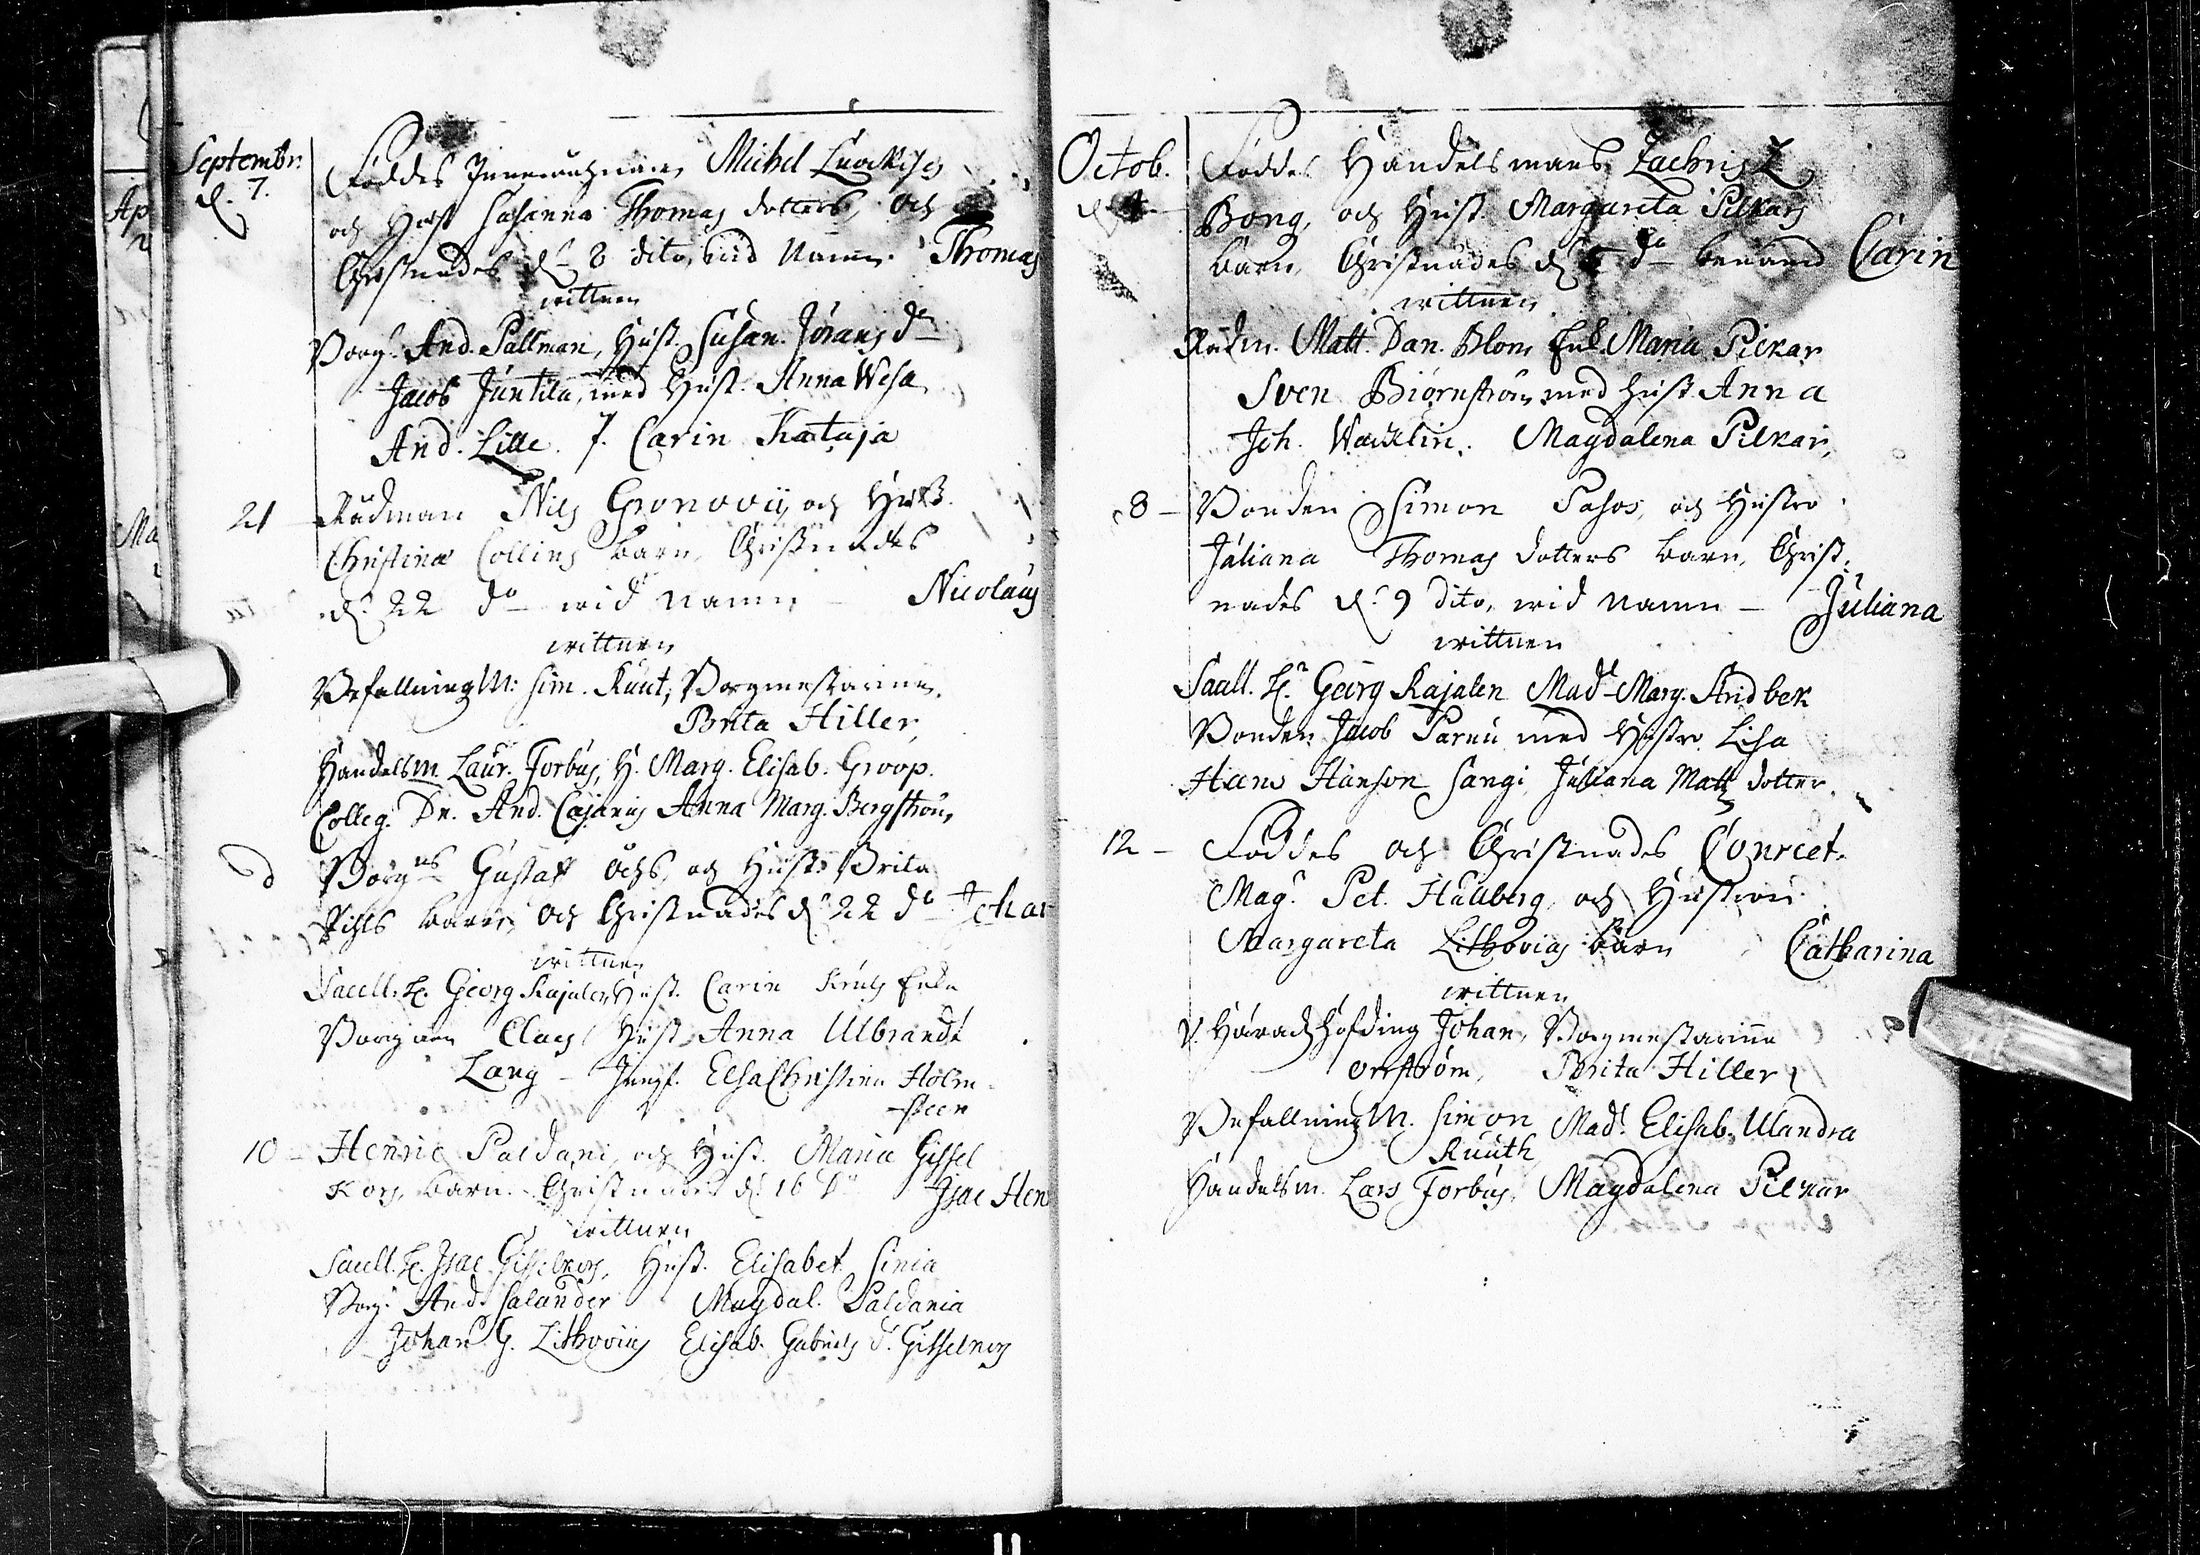 Septembr.
d. 7.
Föddes Michel
och Hust Susanna Thomas dotters, och
Christnades d. 8 dito, wid Namn Thomas
wittnen
Borg. And. Pallman, Hust. Susan. Jörans dr
Jacob Juntila, med Hust. Anna Wesa
And. Lille. J. Carin Kataja
21 Rådman Nils Gronovii, och Hust.
Christina Collins barn, Christnades
d. 22 do wid namn Nicolaus
wittnen
BefallningM: Sim. Ruut, Borgmestarinn.
Brita Hiller,
Handelsm. Laur. Forbus, H. Marg. Elisab. Groop.
Colleg. Dn. And. Cajanus Anna Marg. Bergström,
d Gustaff och Hust: Brita
barn, och Christnades d. 22 do Johan
wittnen
Sacell. H. Georg Kajalen, Hust. Carin
Borgaren Claes Hust. Anna Ulbrandt
Lang – Jungf. Elsa Christina Holm-
steen
10 – Henric Paldani, och Hust. Maria Gissel
Kors, barn. Christnades d. 16 do Isac Hen
wittnen
Sacell. H. Isac Gisselkors, Hust. Elisabet Sinia
Borg. And. Salander Magdal. Paldania
Johan G. Lithovius Elisab. Gabriels d. Gisselkors
Octob.
d.
Föddes Handelsmans Zachris
Bong, och Hust. Margareta Pilkars
barn, Christnades d. do benämd Carin
wittnen
Rådm. Matt. Dan. Blom Enk. Maria Pilkar
Sven Biörnström med hust Anna
Joh. Wacklin. Magdalena Pilkar,
8 – Bonden Simon Pasos, och Hustro
Juliana Thomas dotters barn, Christ-
nades d. 9 dito, wid namn – Juliana
wittnen
Sacell. H. Georg Kajalen Mad. Marg. Aridbek
Bonden Jacob Parnu med Hustro Lisa
Hans Hanson Sangi, Juliana Matts dotter.
12 – Föddes och Christnades Conrect.
Mag. Pet. Hallberg, och Hustrun
Margareta Lithovius barn Catharina
wittnen
V. Häradshöfding Johan, Borgmestarinna
Brita Hiller,
BefallningM. Simon Mad. Elisab. Ulandra
Ruuth
Handelsm. Lars Forbus, Magdalena Pilkar